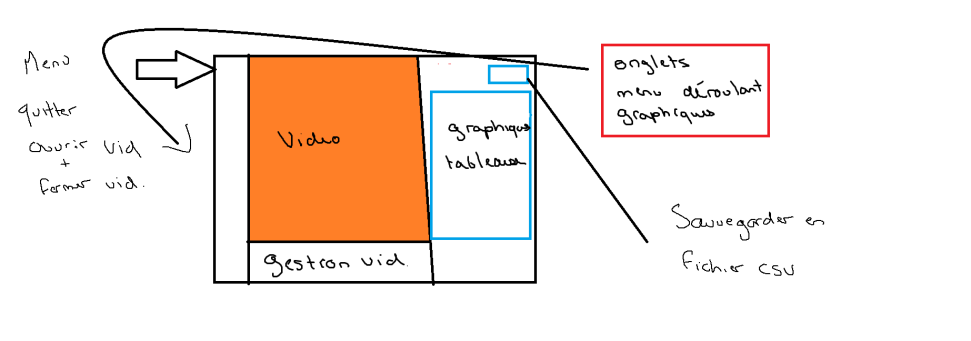 Menu
quitter
ouvrir vid
+
fermer vid.
Video
gestion vid.
graphiques
tableaux
onglets
menu déroulant
graphiques
Sauvegarder en
fichier csv